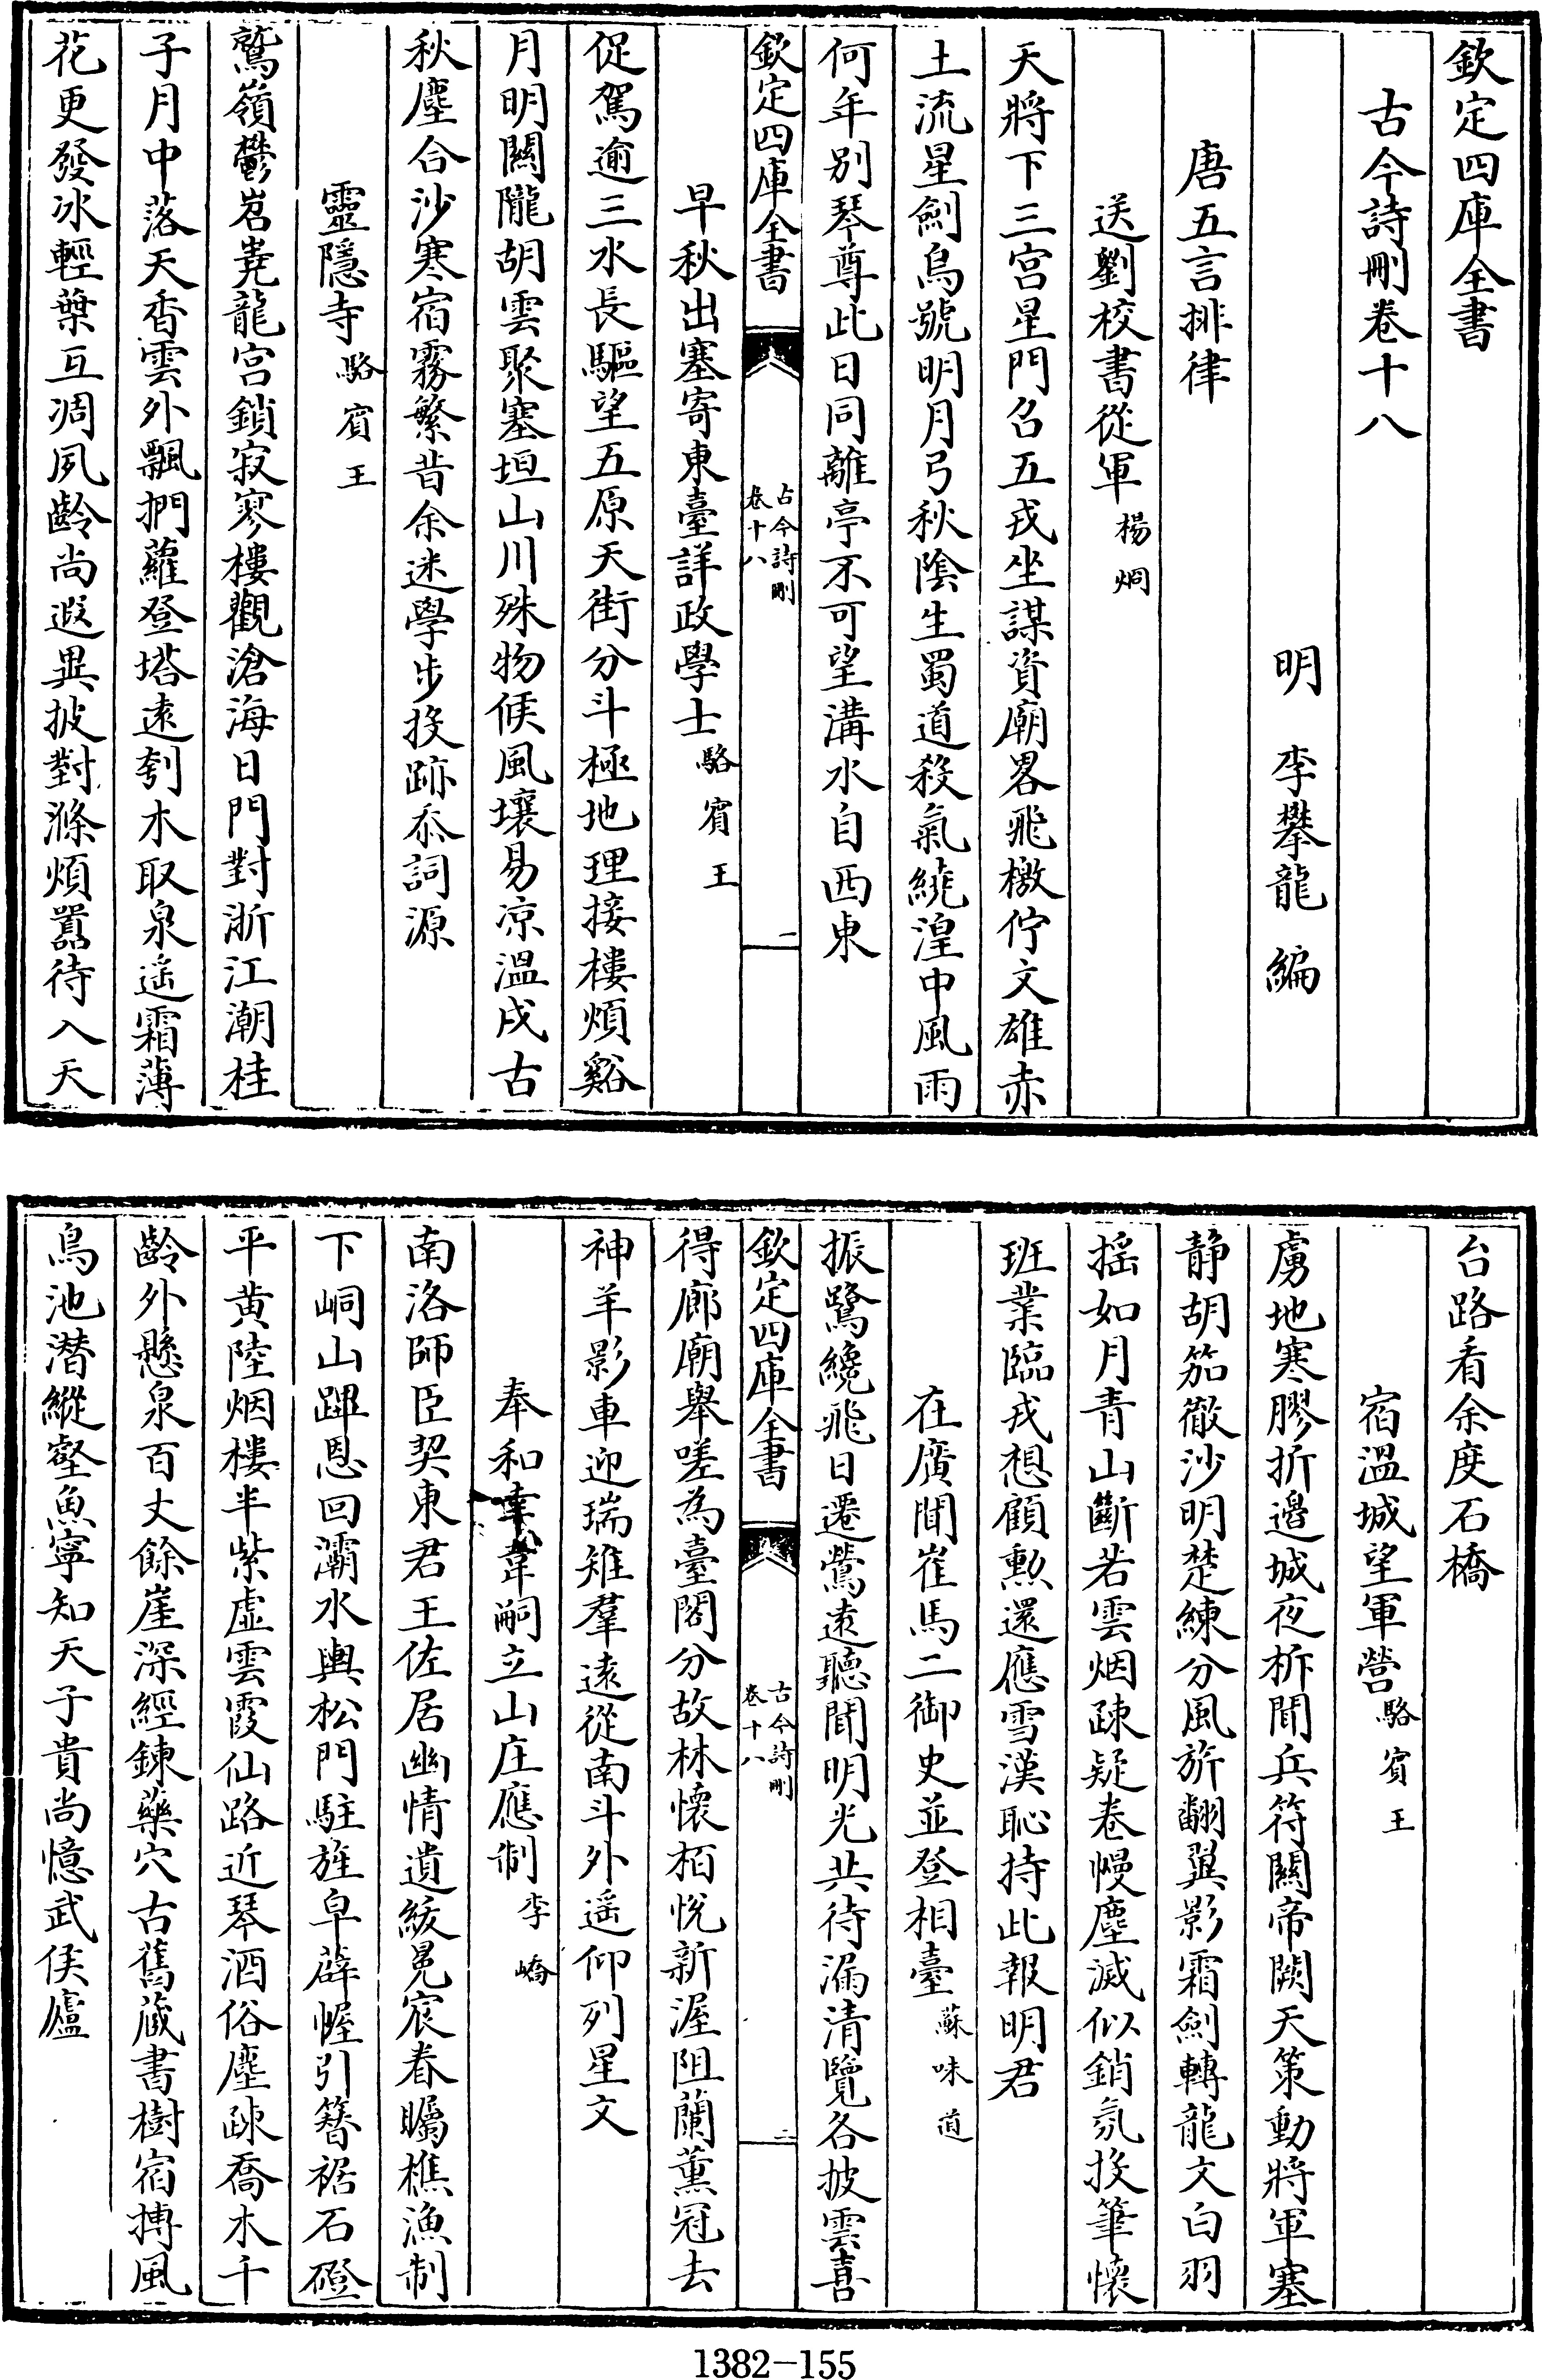 欽定四庫全書
古今詩刪卷十八
明 李攀龍 編
唐五言排律
送劉校書從軍 楊炯
天將下三宮星門召五戎坐謀資廟畧飛檄佇文雄赤
土流星劍烏號明月弓秋陰生蜀道殺氣繞湟中風雨
何年別琴尊此日同離亭不可望溝水自西東
欽定四庫全書 古今詩刪卷十八 一
早秋出塞寄東臺詳政學士 駱賓王
促駕逾三水長驅望五原天街分斗極地理接樓煩谿
月明關隴胡雲聚塞垣山川殊物候風壤易凉溫戍古
秋塵合沙寒宿霧繁昔余迷學步投跡忝詞源
靈隱寺 駱賓王
鷲嶺鬱岧嶤龍宮鎖寂寥樓觀滄海日門對浙江潮桂
子月中落天香雲外飄捫蘿登塔遠刳木取泉遥霜薄
花更發冰輕葉互凋夙齡尚遐異披對滌煩囂待入天
台路看余度石橋
宿溫城望軍營 駱賓王
虜地寒膠折邊城夜柝聞兵符關帝闕天策動將軍塞
静胡笳徹沙明楚練分風旂翻翼影霜劍轉龍文白羽
摇如月青山斷若雲烟疎疑卷幔塵滅似銷氛投筆懷
班業臨戎想顧勲還應雪漢恥持此報明君
在廣聞崔馬二御史並登相臺 蘇味道
振鷺纔飛日遷鶯遠聽聞明光共待漏清覽各披雲喜
欽定四庫全書 古今詩刪卷十八 二
得廊廟舉嗟為臺閣分故林懷栢悅新渥阻蘭薰冠去
神羊影車迎瑞雉羣遠從南斗外遥仰列星文
奉和幸韋嗣立山庄應制 李嶠
南洛師臣契東君王佐居幽情遺紱冕宸眷矚樵漁制
下峒山蹕恩回灞水輿松門駐旌阜薜幄引簪裾石磴
平黄陸烟樓半紫虛雲霞仙路近琴酒俗塵疎喬木千
齡外懸泉百丈餘崖深經鍊藥穴古舊藏書樹宿摶風
鳥池潜縱壑魚寧知天子貴尚憶武侯廬
1382-155